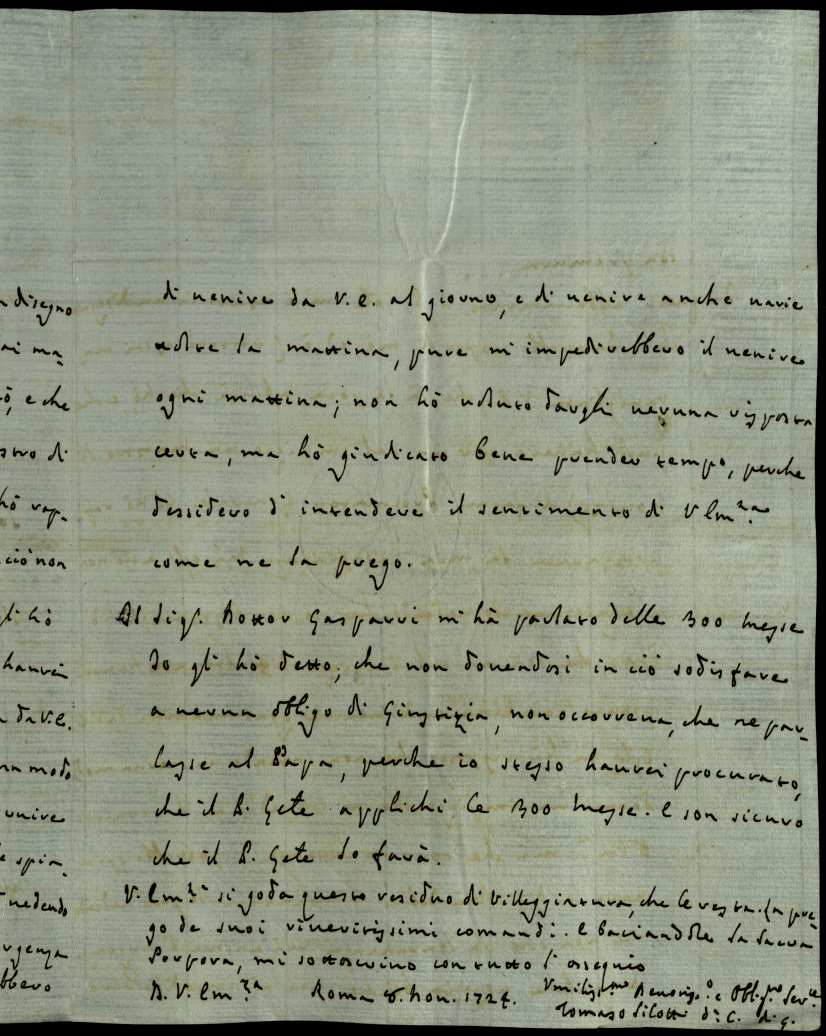 disegno
ai ma-
tò, e che
stro di
hò rap-
ciò non
gli hò
haurei
da V.E.
modo
unire
e spia-
uedendo
urgenza
bbero
di uenire da V.E. al giorno, e di uenire anche uarie
uolte la mattina, pure mi impedirebbero il uenire
ogni mattina; non hò uoluto dargli neuuna risposta
certa, ma hò giudicato bene prender tempo, perche
dessidero d'intendere il sentimento di V Em.za
come ne la prego.
Il Sig.r Dottor Gasparri mi hà parlato delle 300 Messe
Io gli hò detto, che non douendosi in ciò sodisfare
a neuun obligo di Giustizia, non occorreua, che ne par-
lasse al Papa, perche io stesso haurei procurato,
che il P. Gñle applichi le 300 Messe. E son sicuro
che il P. Gñle lo farà.
V. Em.za si goda questo residuo di Villeggiatura, che le resta. La pre-
go de suoi riueritissimi comandi. E baciandole la Sacra
Porpora, mi sottoscriuo con tutto l'ossequio
D. V. Em.za Roma 8. Nou. 1724.
Umiliss.mo Deuotiss.o e Obblig.mo Ser.re
Tomaso